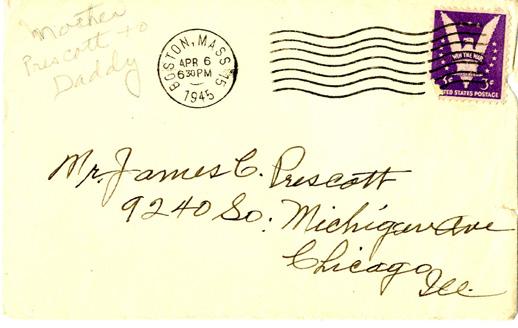 Mother
Prescott to
Daddy
BOSTON, MASS. 15
APR 6
6 30 PM
1945
WIN THE WAR
3¢ 3¢
UNITED STATES POSTAGE
Mr. James C. Prescott
9240 So. Michigan Ave
Chicago
Ill.